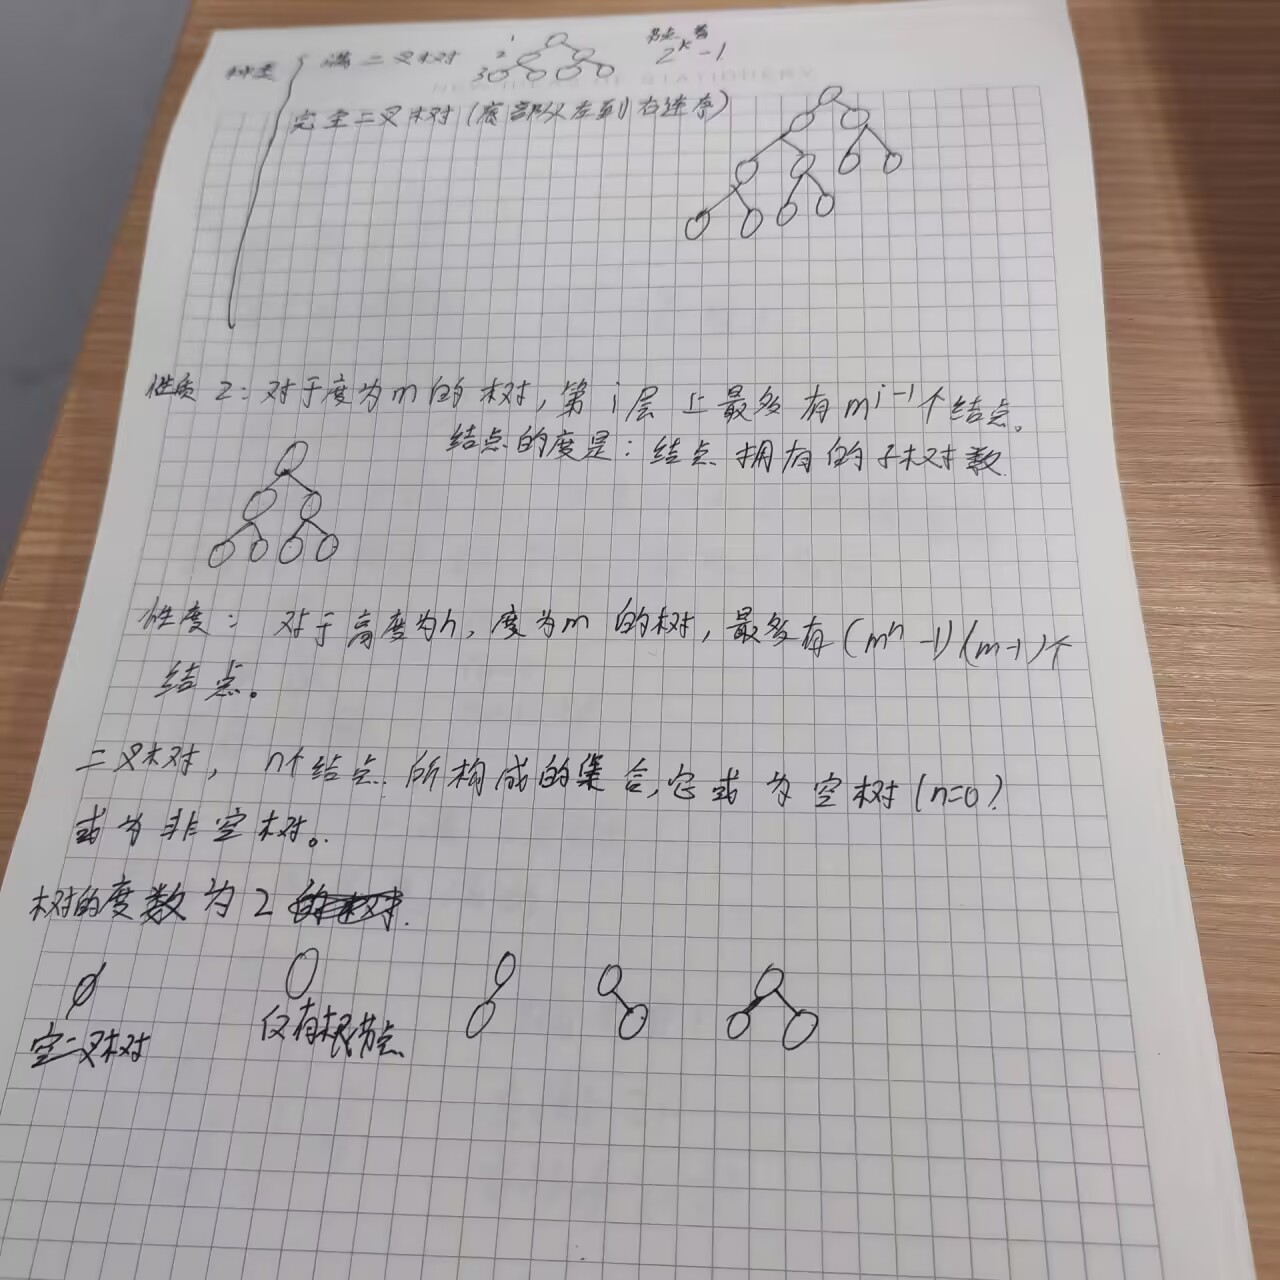 种类 满二叉树 1 2 3 节点数 2^k-1
NEW IDEAS OF STATIONERY
完全二叉树(底部从左到右连序)
性质2:对于度为m的树,第i层上最多有m^{i-1}个结点。
结点的度是:结点拥有的子树数
性度: 对于高度为h,度为m的树,最多有(m^h-1)(m-1)个
结点。
二叉树, n个结点所构成的集合,它或为空树(n=0)
或为非空树。
树的度数为2
φ
空二叉树 仅有根节点